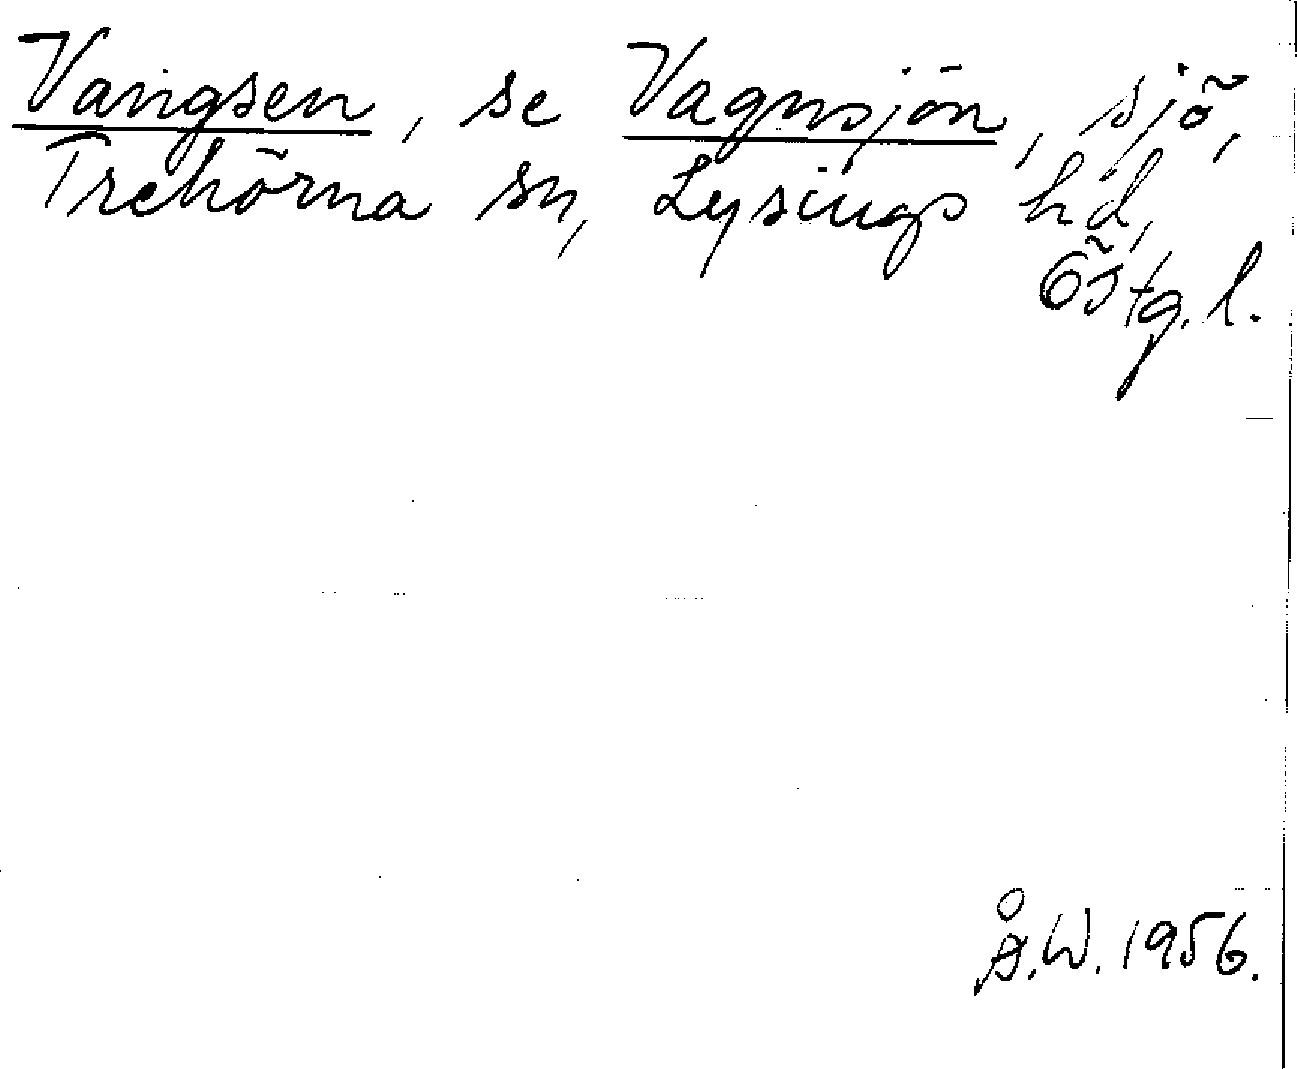 Vangsen, se Vagnsjön, sjö,
Trehörna sn, Lysings hd,
Östg. l.
Å.W. 1956.